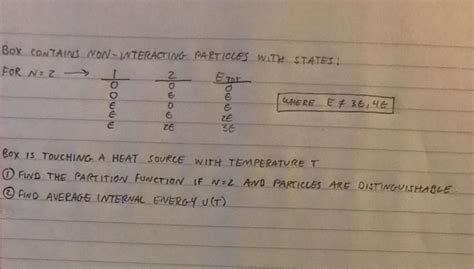 BOX CONTAINS NON-INTERACTING PARTICLES WITH STATES:
FOR N=2 → 1 2 E TOT
0 0 0
0 ε ε
ε 0 ε
ε ε 2ε
ε 2ε 3ε
WHERE E ≠ 3ε, 4ε
BOX IS TOUCHING A HEAT SOURCE WITH TEMPERATURE T
① FIND THE PARTITION FUNCTION IF N=2 AND PARTICLES ARE DISTINGUISHABLE
② FIND AVERAGE INTERNAL ENERGY U(T)